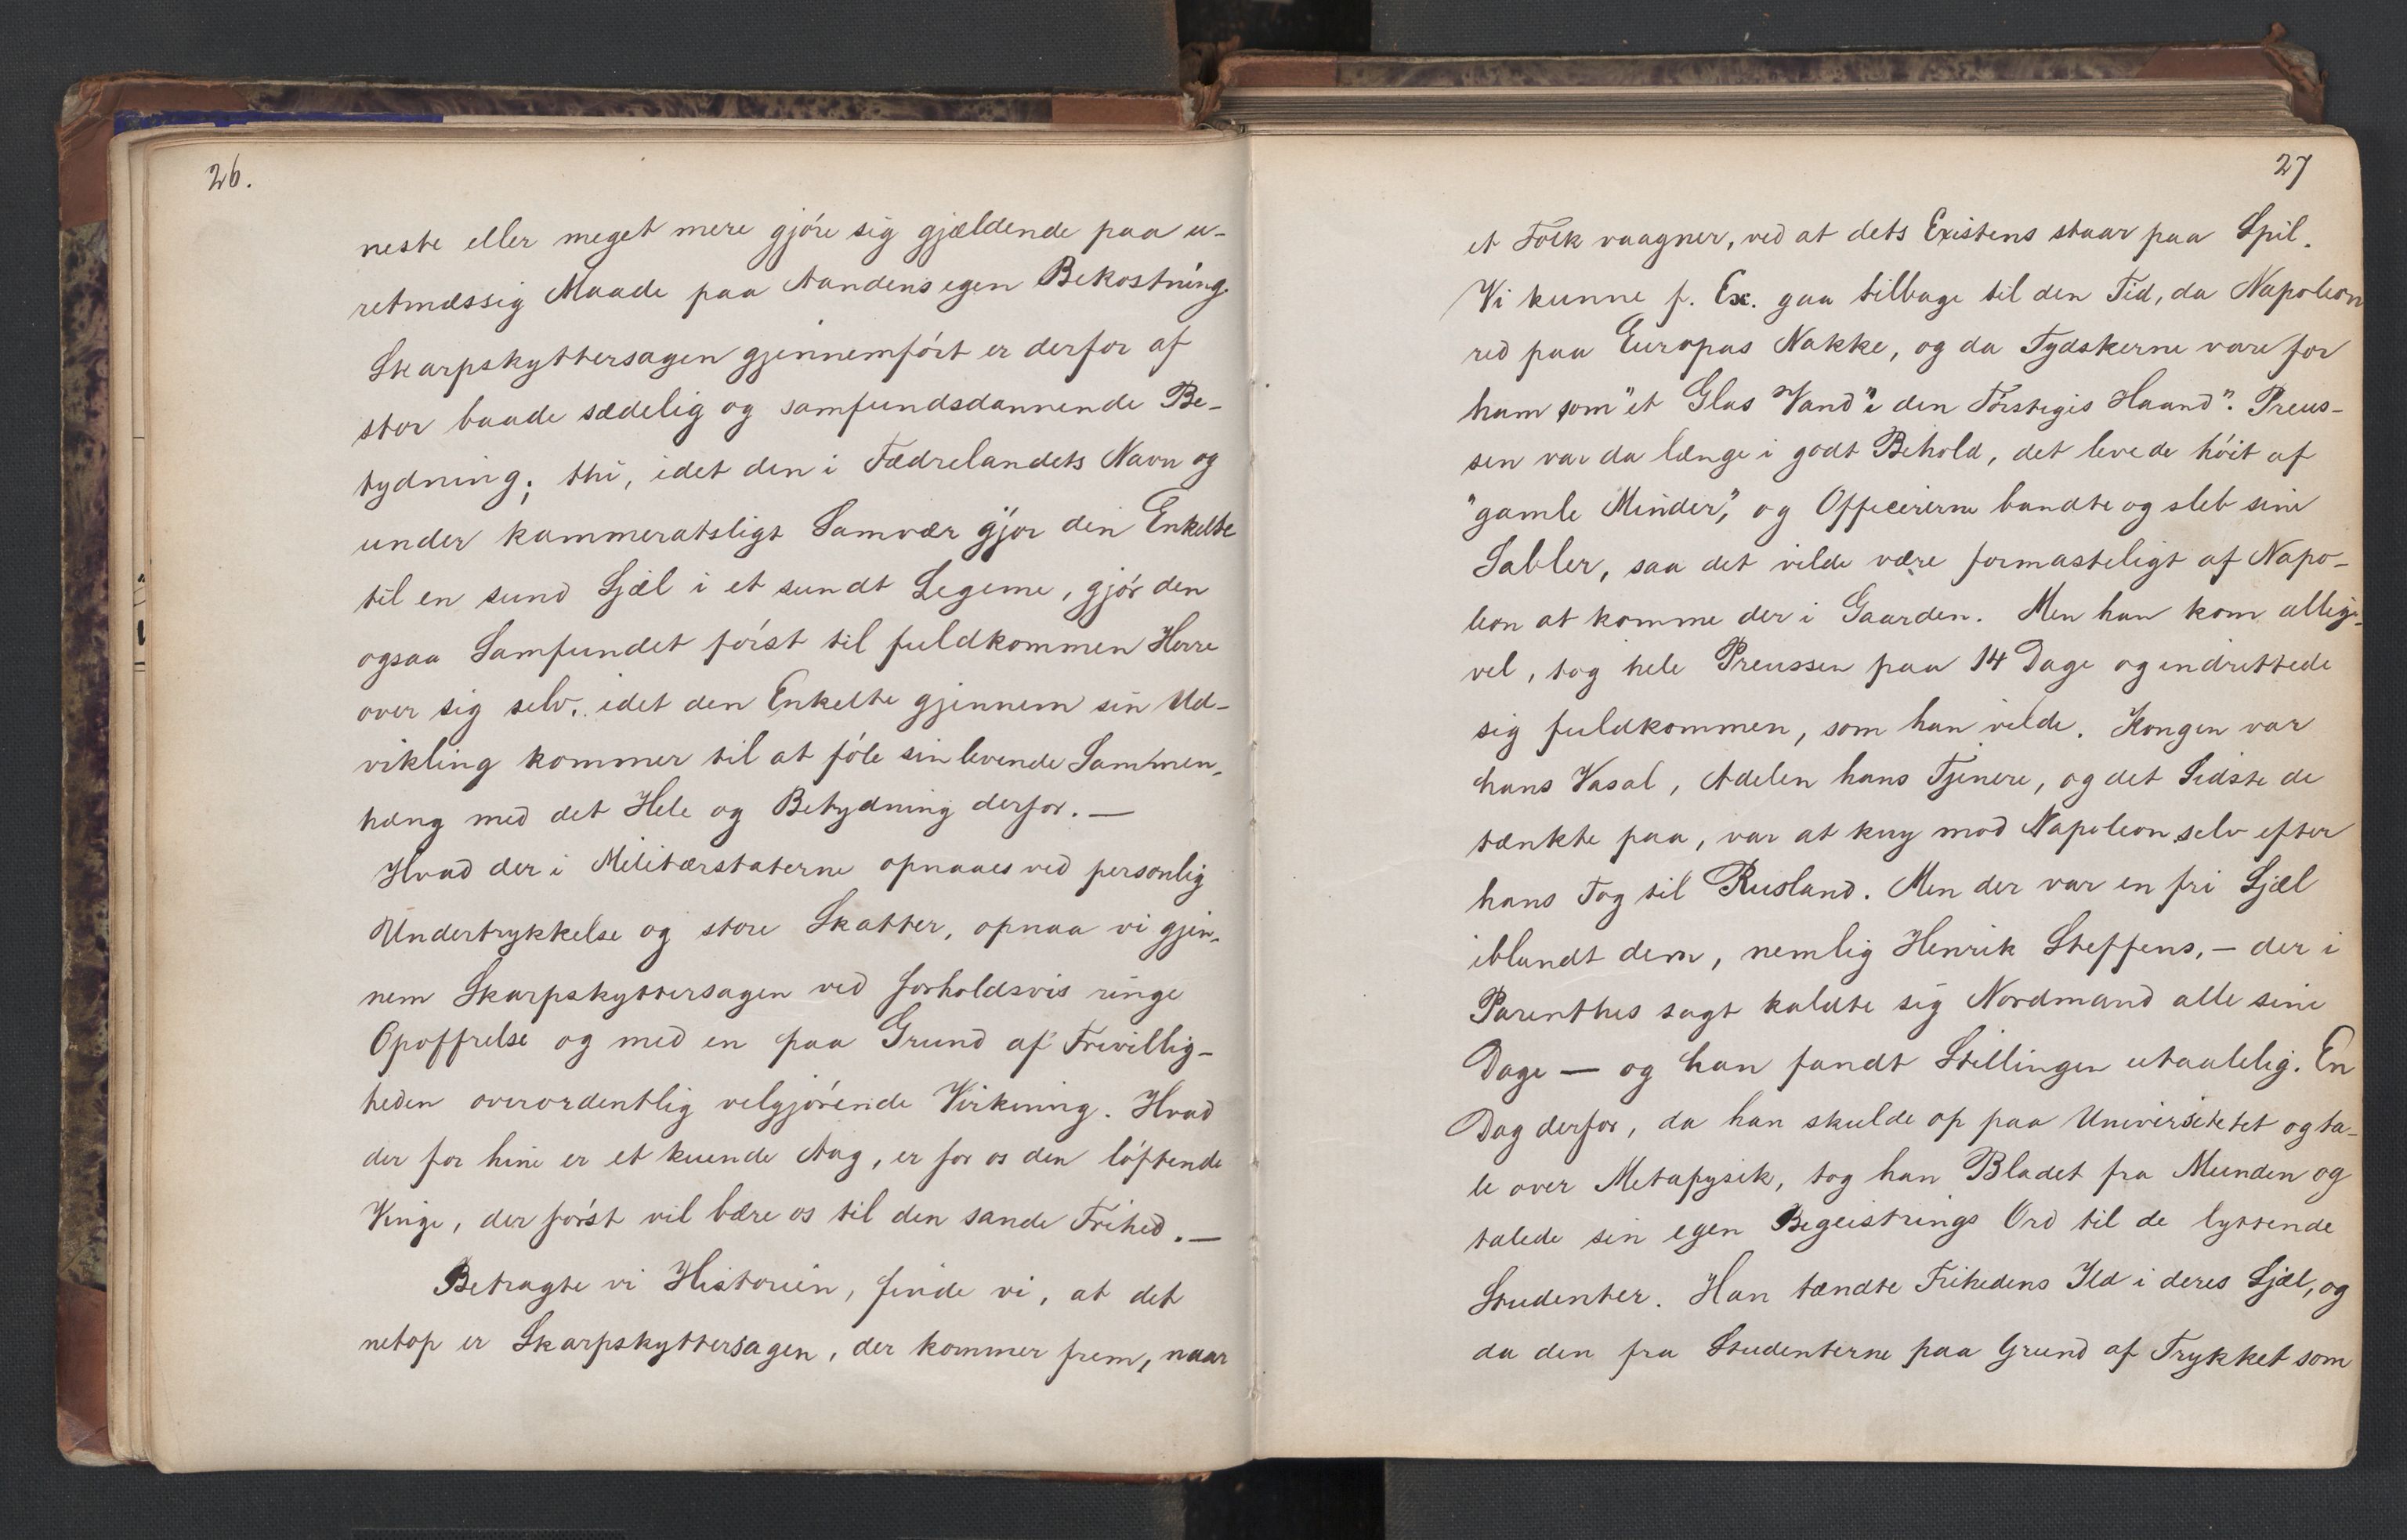 26.
neste eller meget mere gjøre sig gjældende paa u-
retmæssig Maade paa Aandens egen Bekostning.
Skarpskyttersagen gjennemført er derfor af
stor baade sædelig og samfundsdannende Be-
tydning; thi, idet den i Fædrelandets Navn og
under kammeratsligt Samvær gjør den Enkelte
til en sund Sjæl i et sundt Legeme, gjør den
ogsaa Samfundet først til fuldkommen Herre
over sig selv, idet den Enkelte gjennem sin Ud-
vikling kommer til at føle sin levende Sammen-
hæng med det Hele og Betydning derfor. —
Hvad der i Militærstaterne opnaaes ved personlig
Undertrykkelse og store Skatter, opnaa vi gjen-
nem Skarpskyttersagen ved forholdsvis ringe
Opoffrelse og med en paa Grund af Frivillig-
heden overordentlig velgjørende Virkning. Hvad
der for hine er et kuende Aag, er for os den løftende
Vinge, der først vil bære os til den sande Frihed. —
Betragte vi Historien, finde vi, at det
netop er Skarpskyttersagen, der kommer frem, naar
27
et Folk vaagner, ved at dets Existens staar paa Spil.
Vi kunne f. Ex. gaa tilbage til den Tid, da Napoleon
red paa Europas Nakke, og da Tydskerne vare for
ham som "et Glas Vand" i den Tørstigis Haand". Preus-
sen var da længe i godt Behold, det levede høit af
"gamle Minder", og Officererne bandte og sleb sine
Sabler, saa det vilde være formasteligt af Napo-
leon at komme der i Gaarden. Men han kom allige-
vel, tog hele Preussen paa 14 Dage og indrettede
sig fuldkommen, som han vilde. Kongen var
hans Vasal, Adelen hans Tjenere, og det Sidste de
tænkte paa, var at kny mod Napoleon selv efter
hans Tog til Rusland. Men der var en fri Sjæl
iblandt dem, nemlig Henrik Steffens, — der i
Parenthes sagt kaldte sig Nordmand alle sine
Dage — og han fandt Stillingen utaalelig. En
Dag derfor, da han skulde op paa Universitetet og ta-
le over Metafysik, tog han Bladet fra Munden og
talede sin egen Begeistrings Ord til de lyttende
Studenter. Han tændte Frihedens Ild i deres Sjæl, og
da den fra Studenterne paa Grund af Trykket som